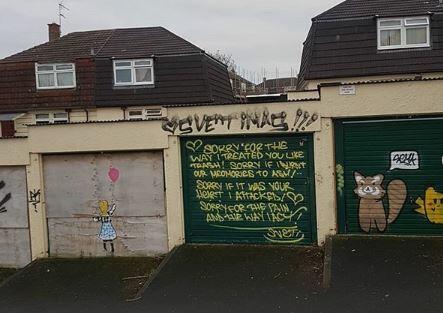 SORRY FOR THE
WAY I TREATED YOU LIKE
TRASH! SORRY IF I
OUR MEMORIES TO ASH!
SORRY IF IT WAS YOUR
HEART I ATTACKED!
SORRY FOR THE PAIN
AND THE WAY I ACT